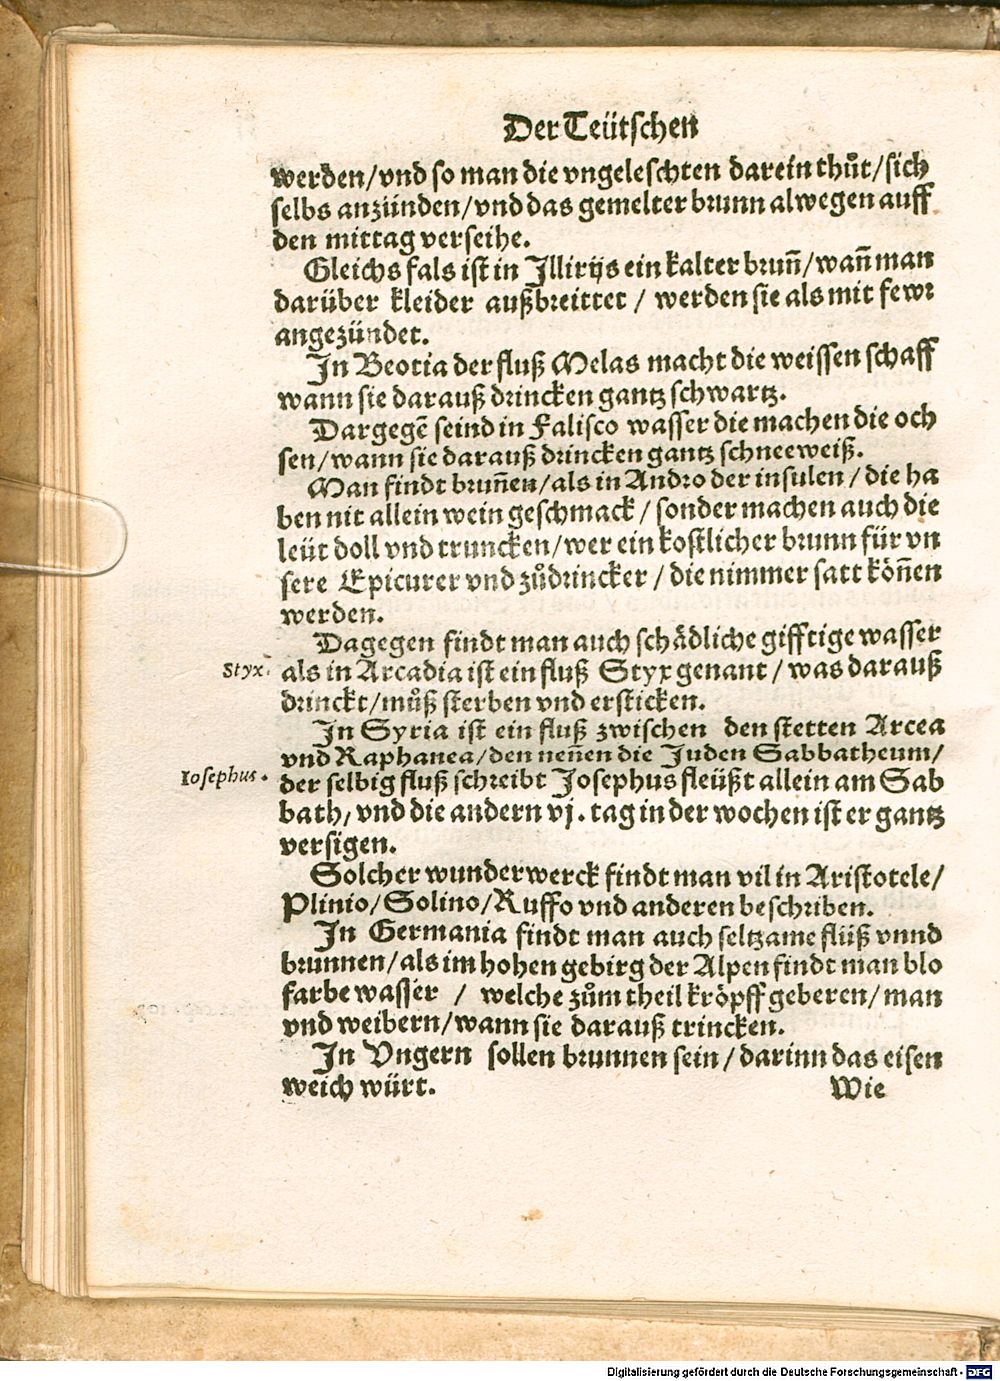 Der Teütschen
werden/vnd so man die vngeleschten darein thuͦt/sich
selbs anzünden/vnd das gemelter brunn alwegen auff
den mittag verseihe.
Gleichs fals ist in Illirijs ein kalter brun̄/wan̄ man
darüber kleider außbreittet / werden sie als mit fewr
angezündet.
In Beotia der fluß Melas macht die weissen schaff
wann sie darauß drincken gantz schwartz.
Dargegē seind in Falisco wasser die machen die och
sen/wann sie darauß drincken gantz schneeweiß.
Man findt brun̄en/als in Andro der insulen/die ha
ben nit allein wein geschmack/sonder machen auch die
leüt doll vnd truncken/wer ein kostlicher brunn für vn
sere Epicurer vnd zuͦdrincker/die nimmer satt kön̄en
werden.
Dagegen findt man auch schädliche gifftige wasser
Styx.
als in Arcadia ist ein fluß Styx genant/was darauß
drinckt/muͦß sterben vnd ersticken.
In Syria ist ein fluß zwischen den stetten Arcea
vnd Raphanea/den nen̄en die Juden Sabbatheum/
Iosephus.
der selbig fluß schreibt Josephus fleüßt allein am Sab
bath/vnd die andern vj. tag in der wochen ist er gantz
versigen.
Solcher wunderwerck findt man vil in Aristotele/
Plinio/Solino/Ruffo vnd anderen beschriben.
In Germania findt man auch seltzame flüß vnnd
brunnen/als im hohen gebirg der Alpen findt man blo
farbe wasser / welche zuͦm theil kröpff geberen/man
vnd weibern/wann sie darauß trincken.
In Vngern sollen brunnen sein/darinn das eisen
weich würt.
Wie
Digitalisierung gefördert durch die Deutsche Forschungsgemeinschaft - DFG